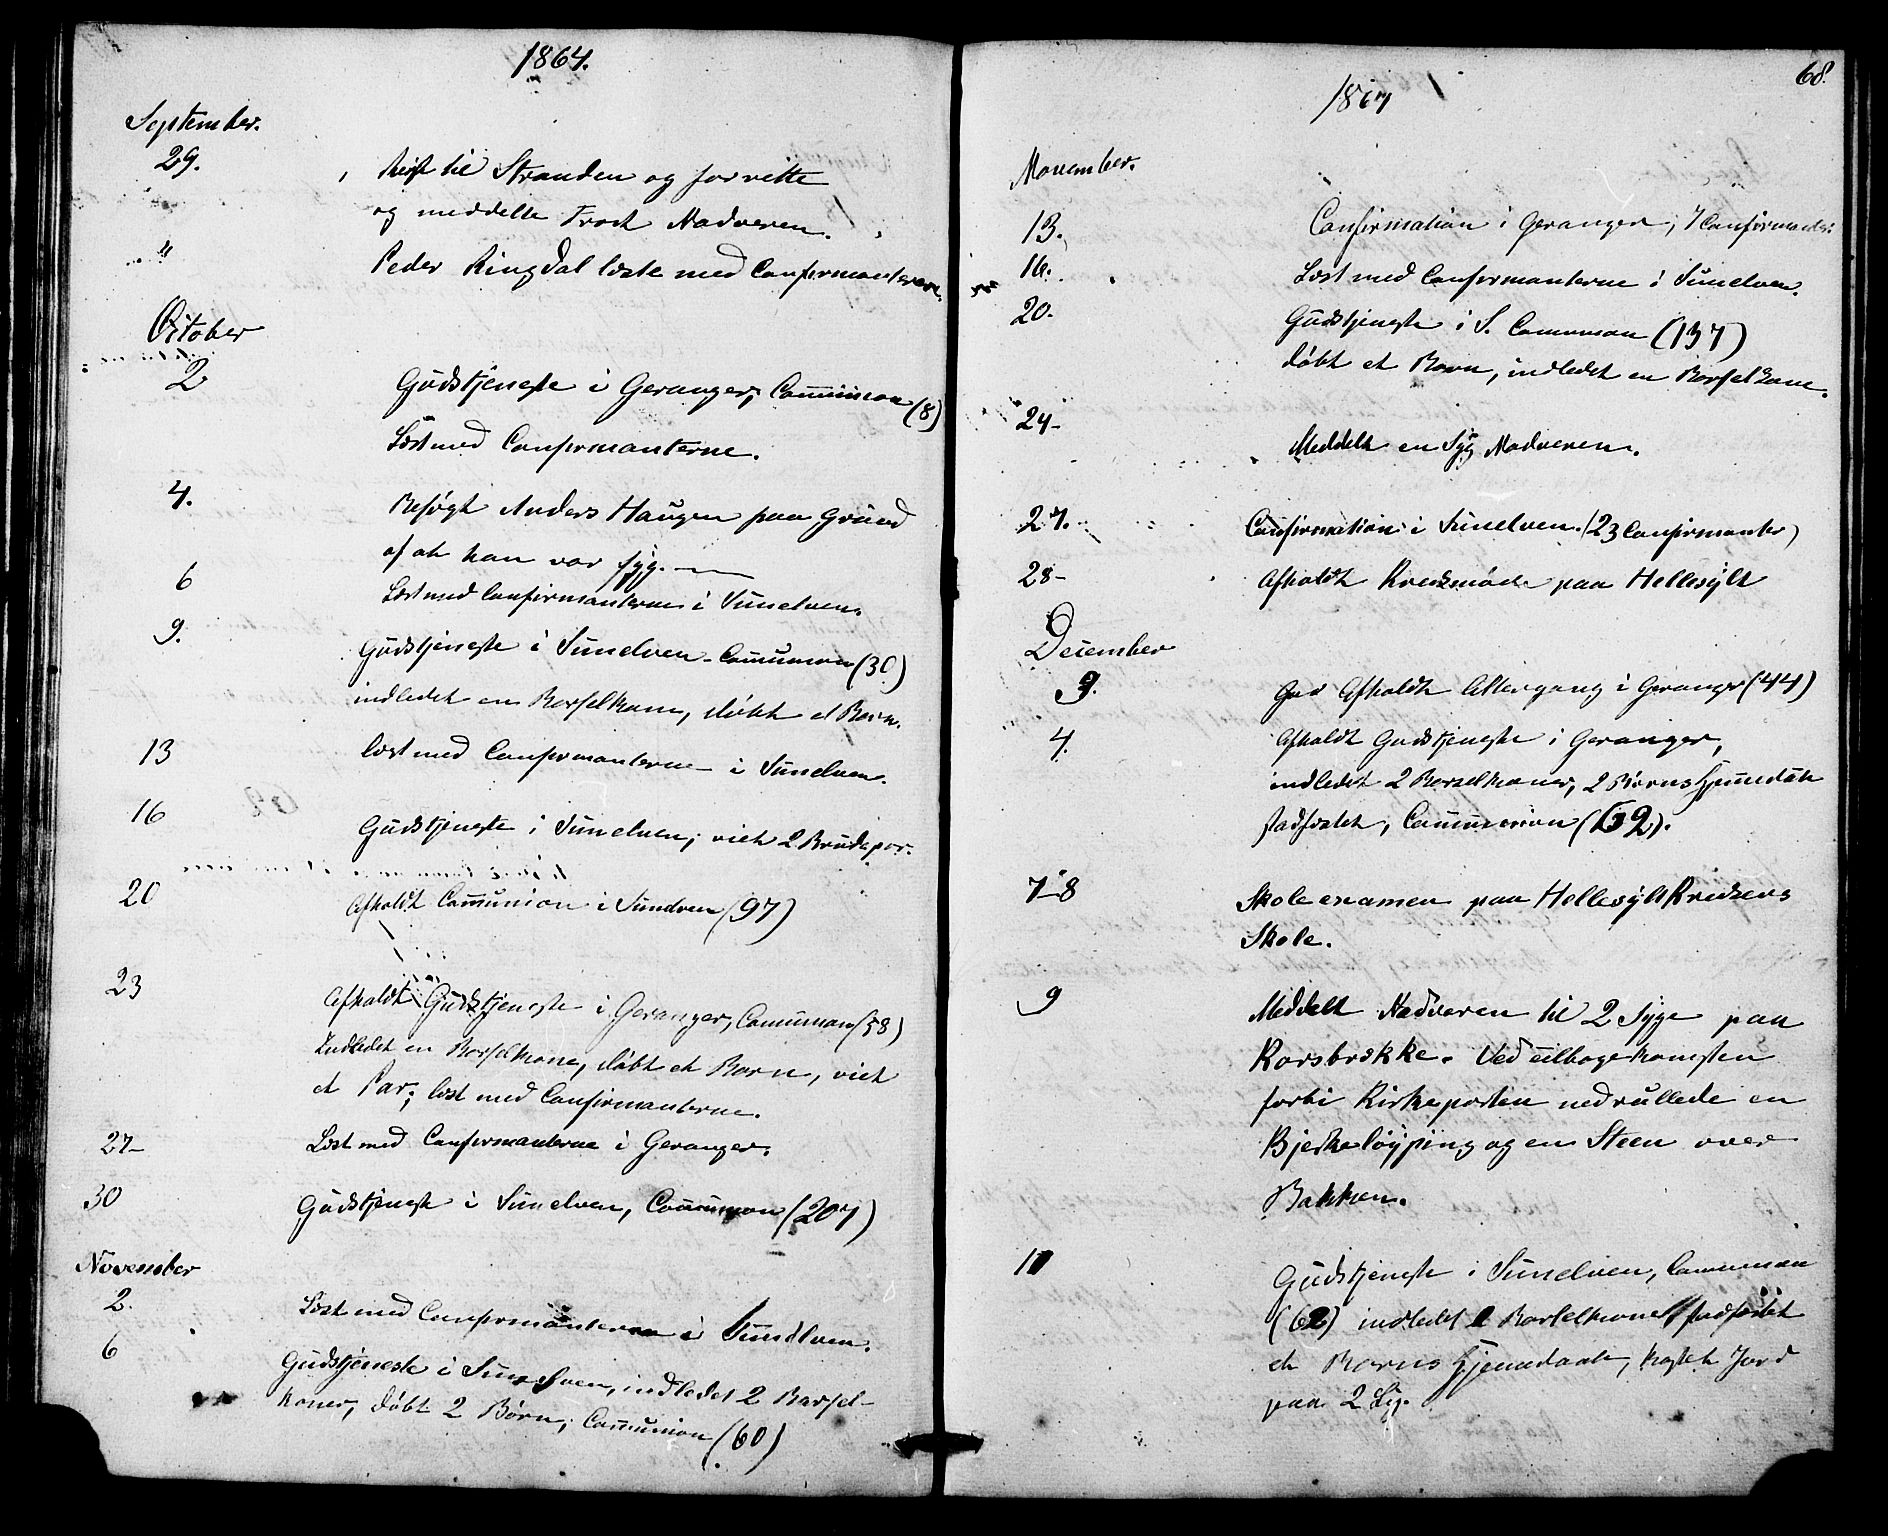 1864.
September.
29. reist til Stranden og forrette
og meddelte Nadveren.
" Peder Ringdal læste med Confirmanterne.
October
2 Gudstjeneste i Geranger, Communion (8)
Læst med Confirmanterne.
4. Besøgt Anders Haugen paa Grund
af at han var syg.
6 Læst med Confirmanterne i Sunelven.
9. Gudstjeneste i Sunelven. Communion (30)
indledet en Barselkone, døbt et Barn.
13 læst med Confirmanterne i Sunelven.
16 Gudstjeneste i Sunelven; viet 2 Brudepar.
20 Afholdt Communion i Sunelven (97)
23 Afholdt Gudstjeneste i Geranger, Communion (58)
Indledet en Barselkone, døbt et Barn, viet
et Par; læst med Confirmanterne.
27- Læst med Confirmanterne i Geranger.
30 Gudstjeneste i Sunelven, Communion (207)
November
2. Læst med Confirmanterne i Sunelven.
6 Gudstjeneste i Sunelven, indledet 2 Barsel-
koner, døbt 2 Børn; Communion (60)
68.
1864
November.
13. Confirmation i Geranger, 7 Confirmander.
16. Læst med Confirmanterne i Sunelven.
20. Gudstjeneste i S. Communion (137)
døbt et Barn, indledet en Barselkone.
24- Meddelt en Syg Nadveren.
27. Confirmation i Sunelven. (23 Confirmanter)
28- Afholdt Kredsmøde paa Hellesylt
December
3. Afholdt Altergang i Geranger (44)
4. Afholdt Gudstjeneste i Geranger,
indledet 2 Barselkoner, 2 Børns Hjemmedåb
stadfæstet, Communion (52).
7-8 Skoleexamen paa Hellesylt Kredsens
Skole.
9 Meddelt Nadveren til 2 Syge paa
Korsbrekke. Ved tilbagekomsten
forbi Kirkeporten nedrullede en
og en Steen over
Bakken.
11 Gudstjeneste i Sunelven, Communion
(62) indledet 2 Barselkoner, stadfæstet
et Barns Hjemmedaab, kastet Jord
paa 2 Lig.